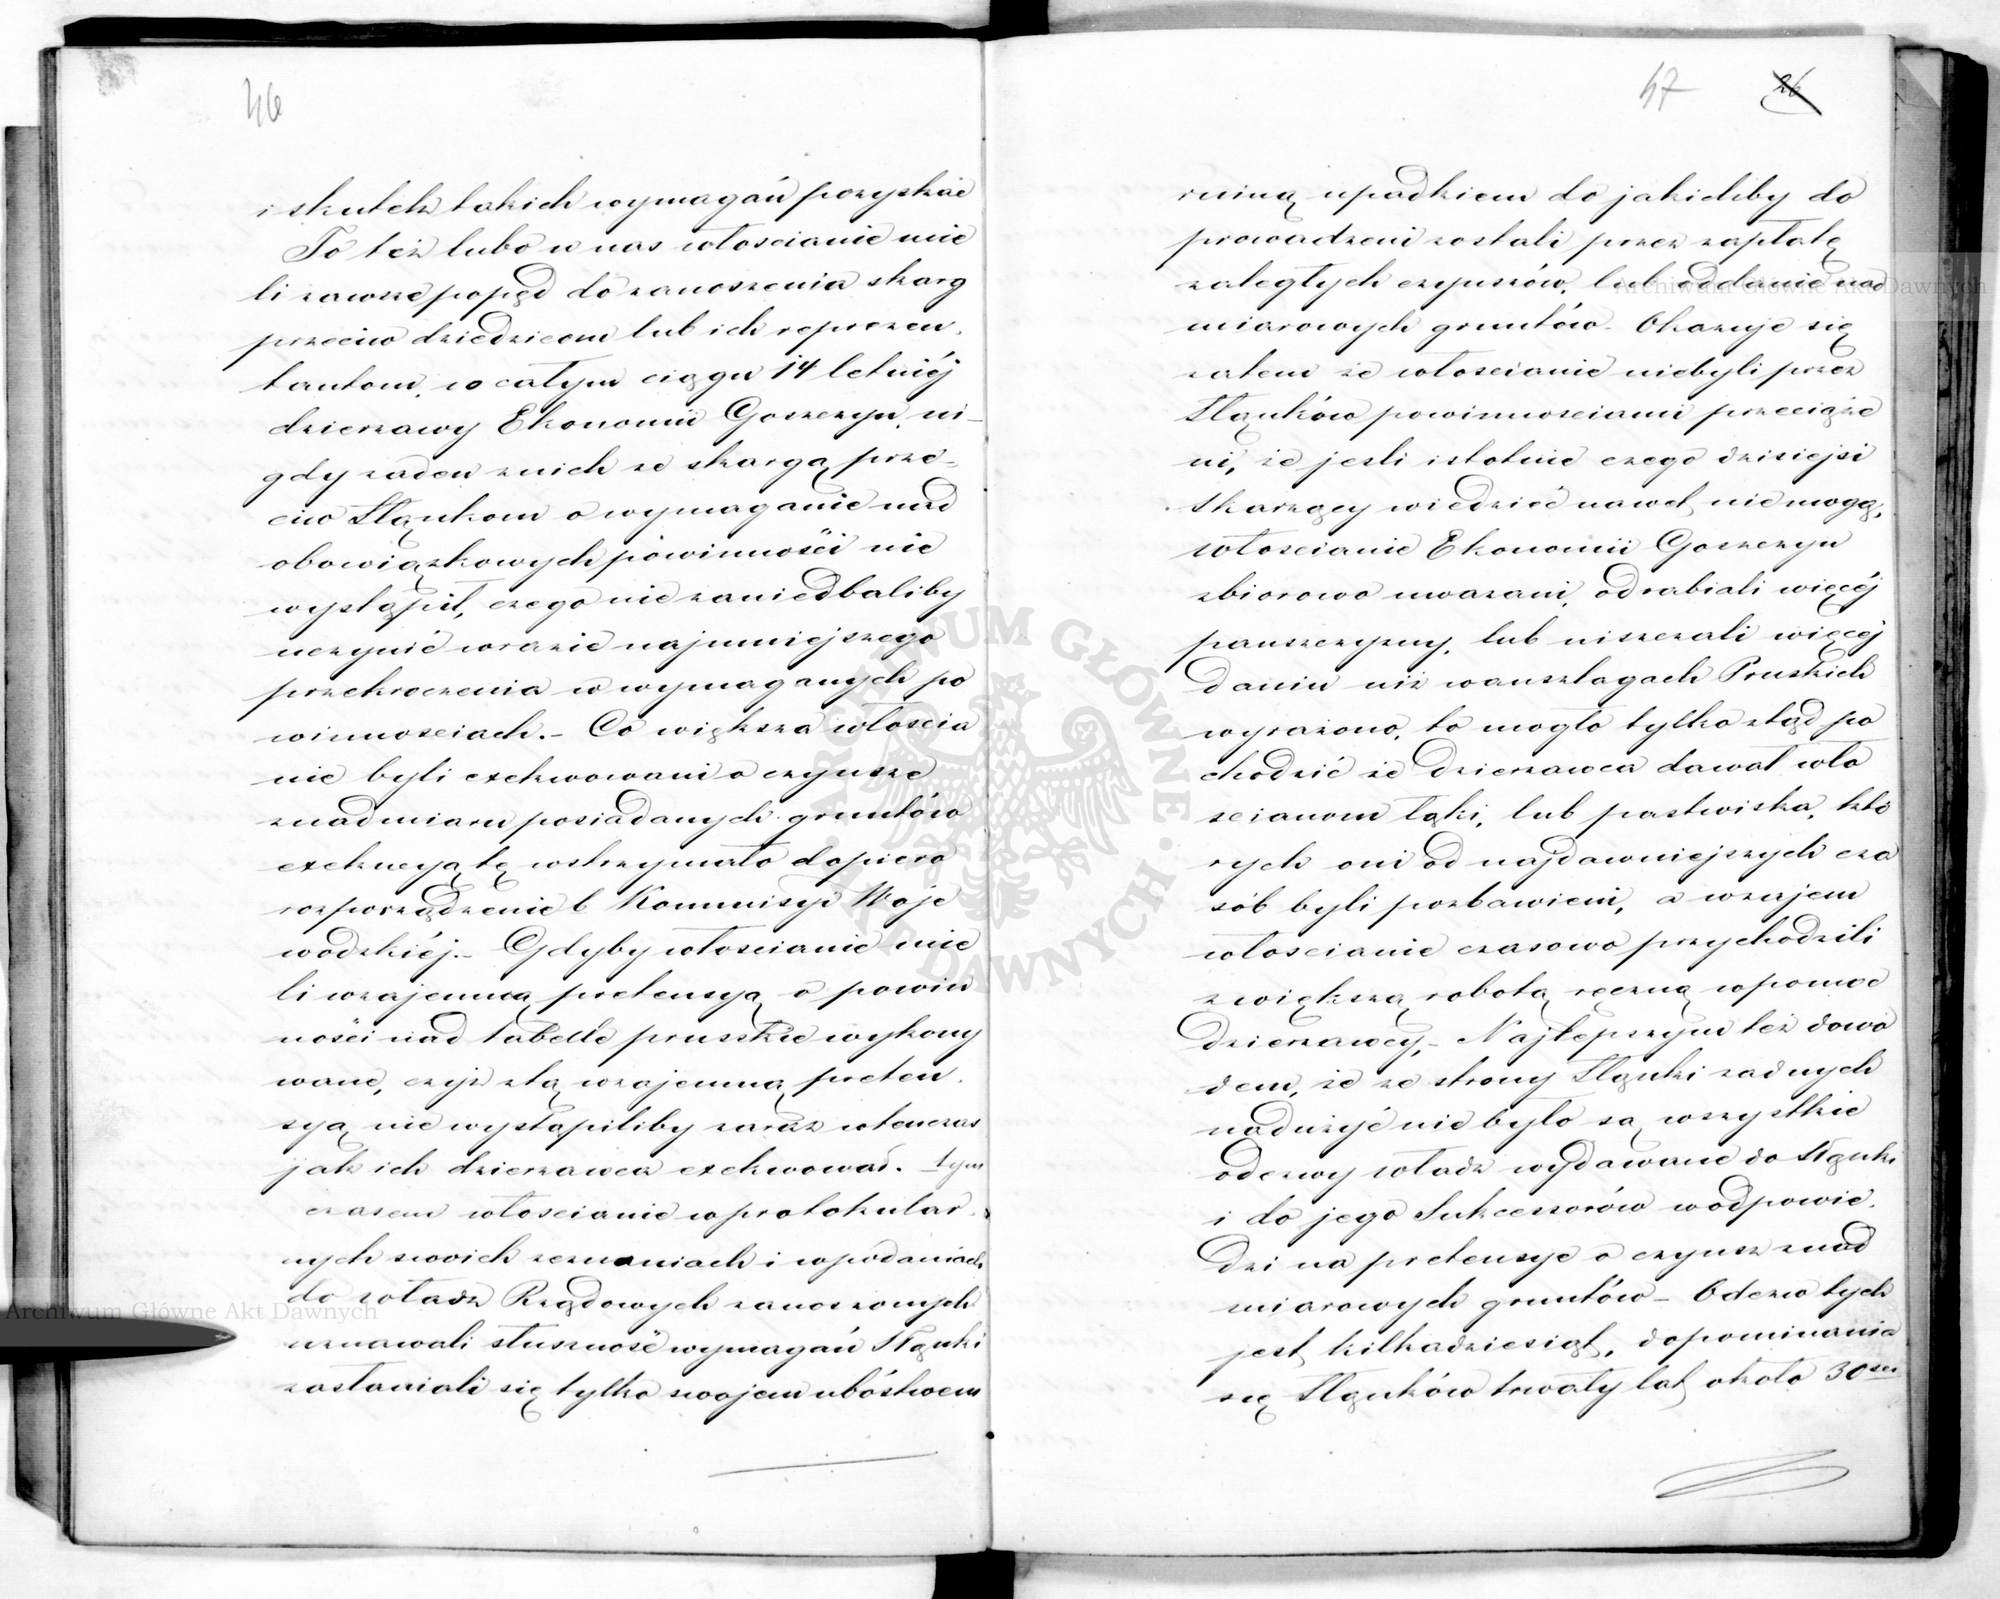 46
i skutek takich wymagań pozyskać
To też lubo u nas włoscianie mie
li zawsze popęd do zanoszenia skarg
przeciw dziedzicom lub ich reprezen.
tantom, w całym ciągu 14 letniéj
dzierzawy Ekonomii Goszczyn, ni-
gdy zaden znich ze skargą prze-
ciw Slązkom o wymaganie nad
obowiązkowych powinności nie
wystąpił, czego nie zaniedbaliby
uczynić w razie najmniejszego
przekroczenia w wymaganych po
winnosciach.- Co większa włoscia
nie byli exekwowani o czynsze
znadmiaru posiadanych gruntów
exekucyą tę wstrzymało dopiero
rozporządzenie b Kommisyi Woje
wodzkiéj.- Gdyby włoscianie mie
li wzajemną pretensyą o powin
ności nad tabelle prusskie wykony
wane, czyż ztą wzajemną preten.
syą nie wystąpiliby zaraz wtenczas
jak ich dzierzawca exekwował. tym
czasem włoscianie w protokular.
nych swoich zeznaniach i w podaniach
do władz Rządowych zanoszonych
uznawali słuszność wymagań
zastaniali się tylko swojem ubóstwem
47 26
ruiną upadkiem do jakichby do
prowadzeni zostali przez zapłatę
zaległych czynszów, lub oddanie nad
miarowych gruntów- Okazuje się
zatem że włoscianie niebyli przez
powinnosciami przeciąże
ni, że jesli istotnie czego dzisiejsi
skarzący wiedzieć nawet nie mogą,
włoscianie Ekonomii Goszczyn
zbiorowo uwazani, odrabiali więcéj
panszczyzny, lub uiszczali więcéj
danin niż w anszlagach Pruskich
wyrażono, to mogło tylko ztąd po
chodzić że Dzierzawca dawał wło
scianom łąki, lub pastwiska, któ
rych oni od najdawniejszych cza
sób byli pozbawieni, a wzajem
włoscianie czasowo przychodzili
zwiększą robotą ręczną w pomoc
Dzierzawcy,- Najlepszym też dowo
dem, że ze strony zadnych
nadużyć nie było są wszystkie
odezwy władz wydawane do
i do jego Sukcessorów w odpowie.
dzi na pretensye o czynsz znad
miarowych gruntów- Odezw tych
jest kilkadziesiąt, dopominania
się trwały lat około 30 stu
Archiwum Główne Akt Dawnych
Archiwum Główne Akt Dawnych
ARCHIWUM GŁÓWNE AKT DAWNYCH